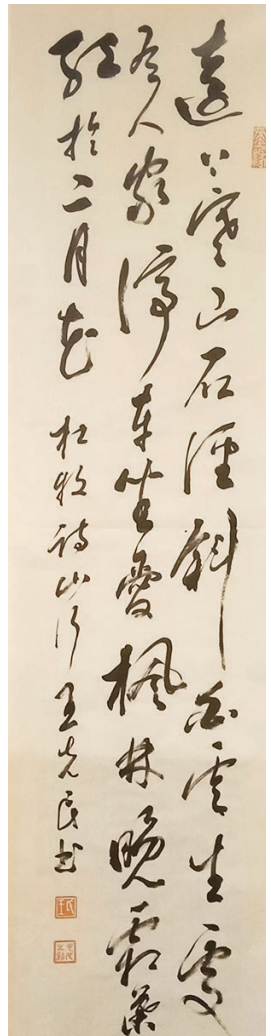 遠上寒山石徑斜白雲生處
有人家停車坐愛楓林晚霜葉
紅於二月花 杜牧詩山行 王
書